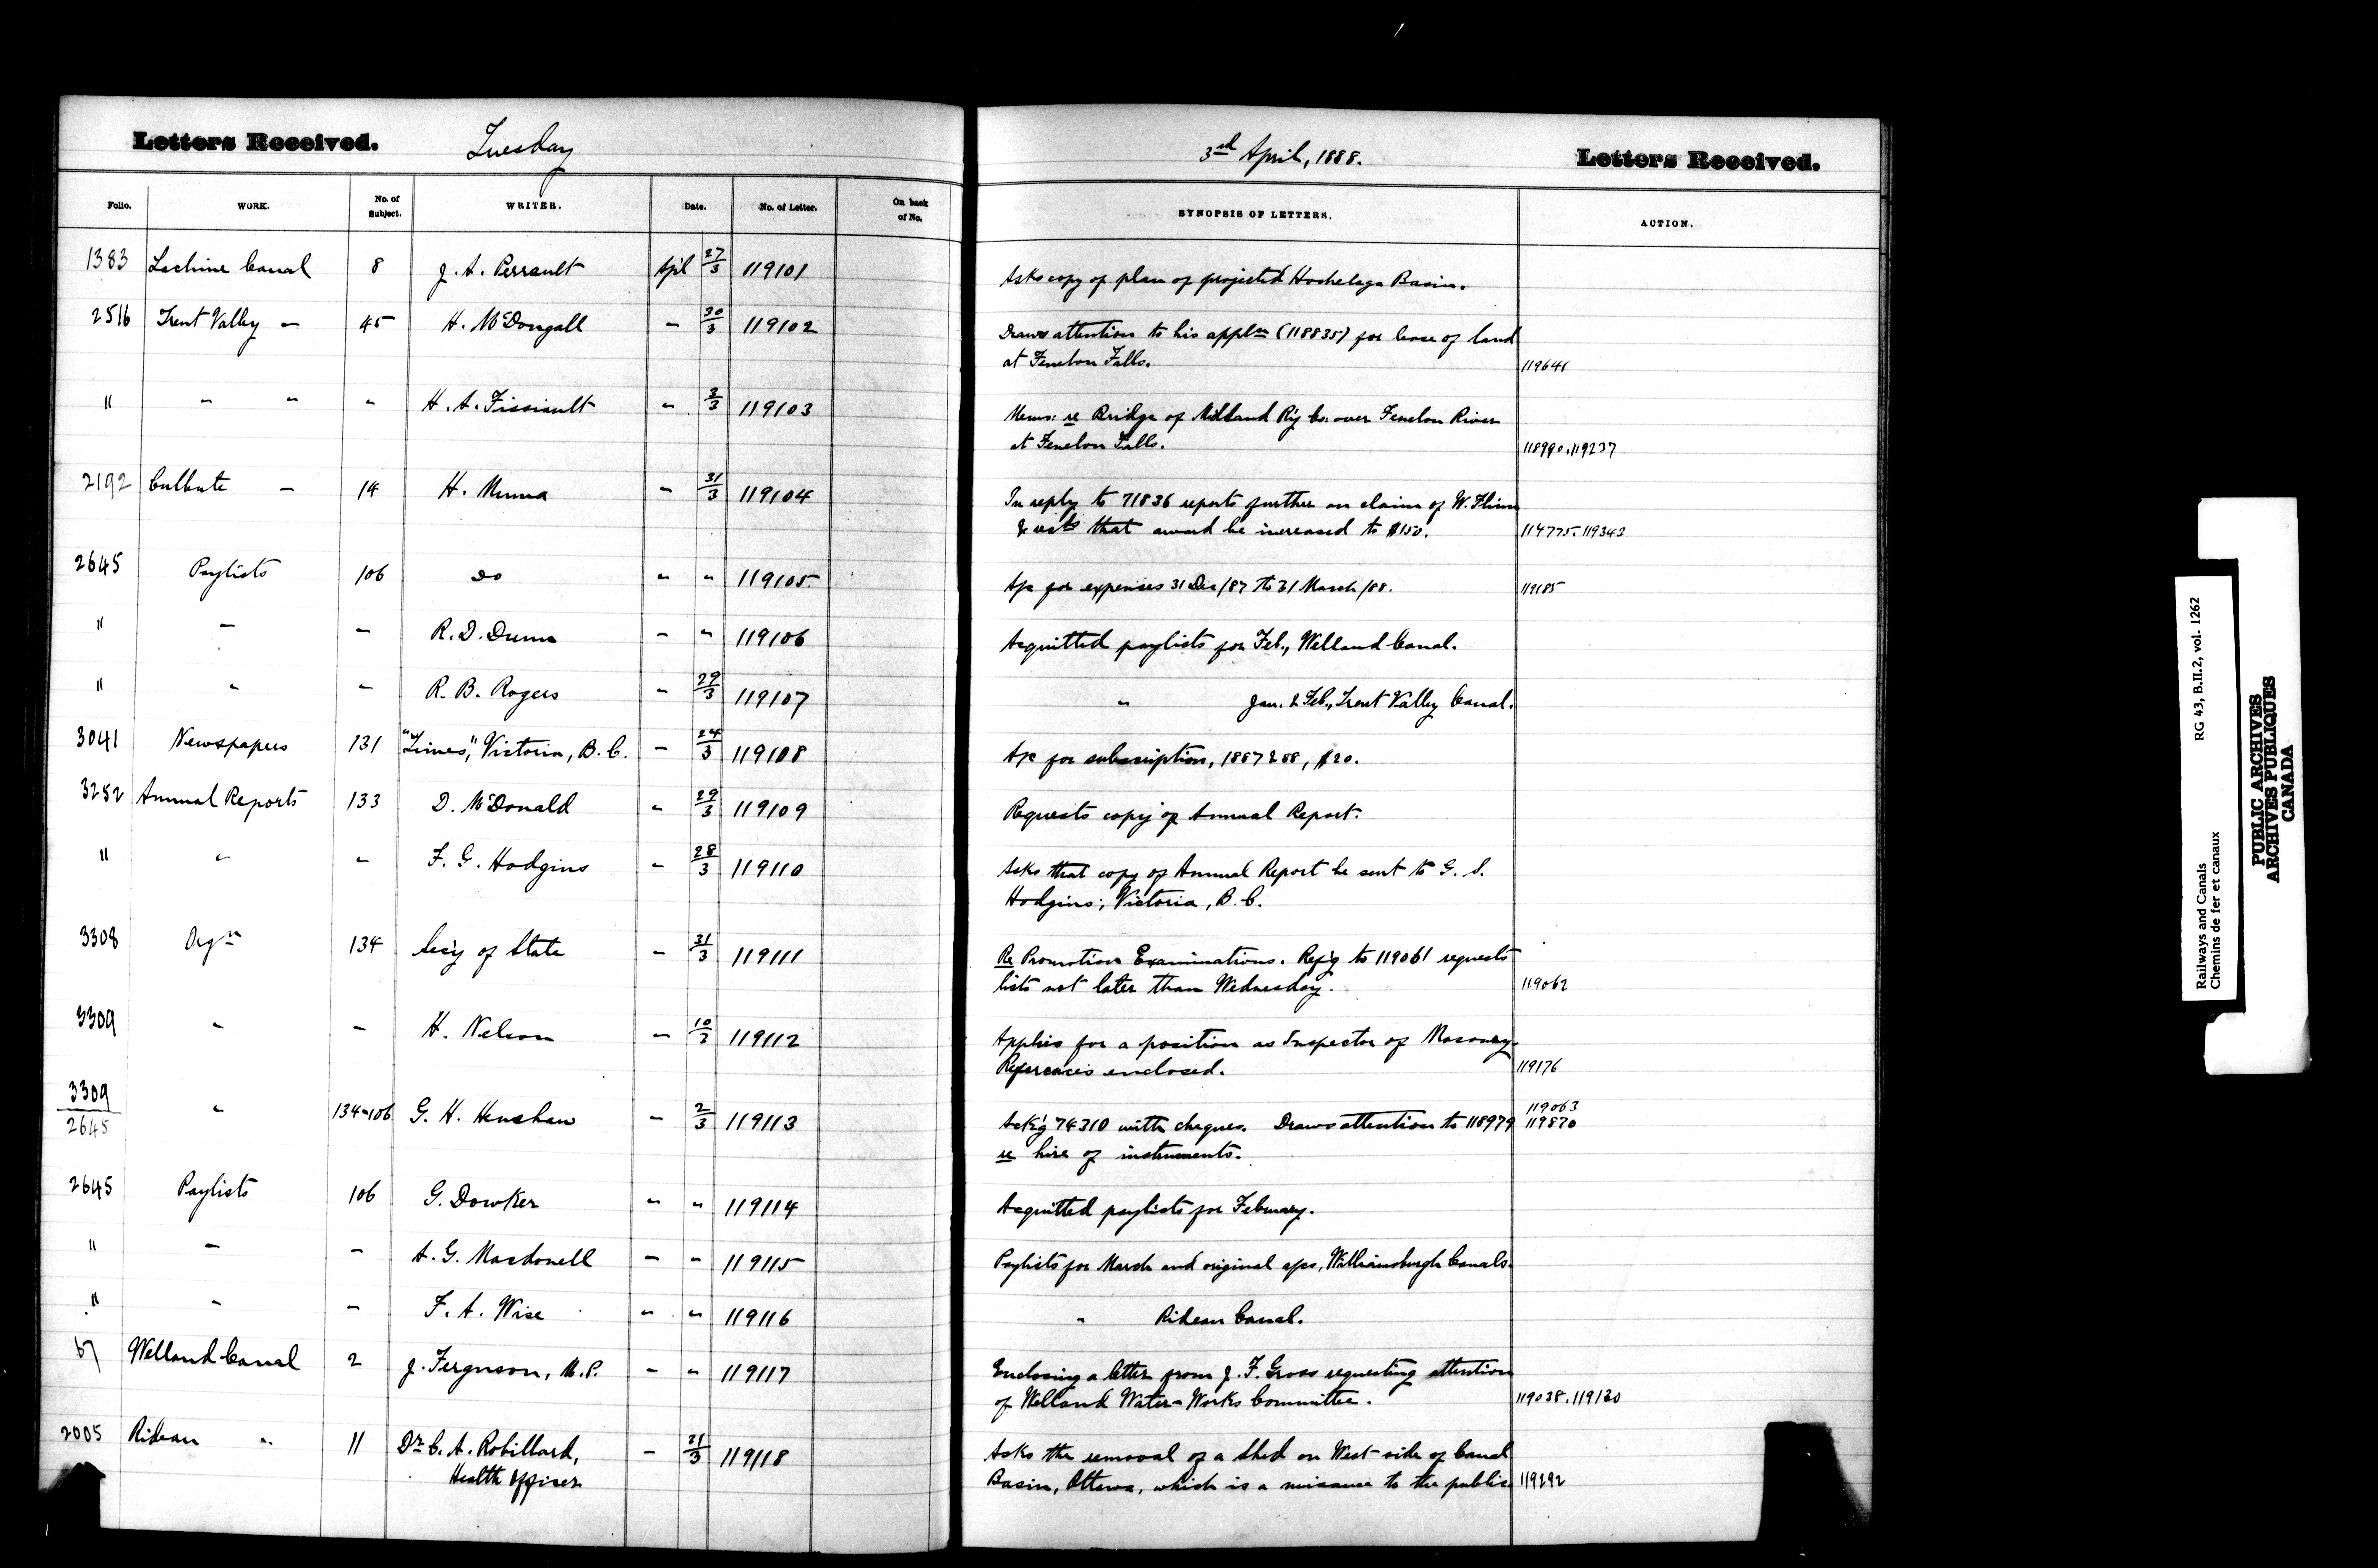 Letters Received. Tuesday
3rd April, 1888. Letters Received.
Folio. WORK. No. of Subject. WRITER. Date. No. of Letter. On back of No. SYNOPSIS OF LETTERS. ACTION.
1383 Lachine Canal 8 J. A. Perrault Apl 27/3 119101 Asks copy of plan of projected Hochelaga Basin.
2516 Trent Valley - 45 H. McDougall - 30/3 119102 Draws attention to his appln (118835) for lease of land
at Fenelon Falls. 119641
" " " " H. A. Fissiault " 3/3 119103 Memo: re Bridge of Midland Ry Co. over Fenelon River
at Fenelon Falls. 118990.119237
2192 Culbute - 14 H. Munna - 31/3 119104 In reply to 71836 reports further on claim of W. Flinn
& rects that award be increased to $150. 114775.119343
2645 Paylists 106 Do " " 119105 A/c for expenses 31 Dec/87 to 31 March/88. 119185
" - - R. D. Dunn - " 119106 Acquitted paylists for Feb., Welland Canal.
" " - R. B. Rogers - 29/3 119107 " Jan. & Feb., Trent Valley Canal.
3041 Newspapers 131 "Times", Victoria, B.C. - 24/3 119108 A/c for subscription, 1887 & 88, $20.
3252 Annual Reports 133 D. McDonald " 29/3 119109 Requests copy of Annual Report.
" " " F. G. Hodgins - 28/3 119110 Asks that copy of Annual Report be sent to G. S.
Hodgins, Victoria, B.C.
3308 Orgn 134 Secy of State - 31/3 119111 Re Promotion Examinations. Ref'g to 119061 requests
lists not later than Wednesday. 119062
3309 " - H. Nelson - 10/3 119112 Applies for a position as Inspector of Masonry.
References enclosed. 119176
3309/2645 " 134-106 G. H. Henshaw - 2/3 119113 Ack'g 74310 with cheques. Draws attention to 118979 119063
119870
re hire of instruments.
2645 Paylists 106 G. Dowker " " 119114 Acquitted paylists for February.
" - - A. G. Macdonell - - 119115 Paylists for March and original a/cs, Williamsburgh Canals.
" " - F. A. Wise " " 119116 " Rideau Canal.
Welland Canal 2 J. Ferguson, M.P. - " 119117 Enclosing a letter from J. F. Gross requesting attention
of Welland Water-Works Committee. 119038.119120
2005 Rideau " 11 Dr. C. A. Robillard, - 21/3 119118 Asks the removal of a shed on West side of Canal
Health Officer Basin, Ottawa, which is a nuisance to the public. 119292
Railways and Canals RG 43, B.II.2, vol. 1262
Chemins de fer et canaux
PUBLIC ARCHIVES
ARCHIVES PUBLIQUES
CANADA